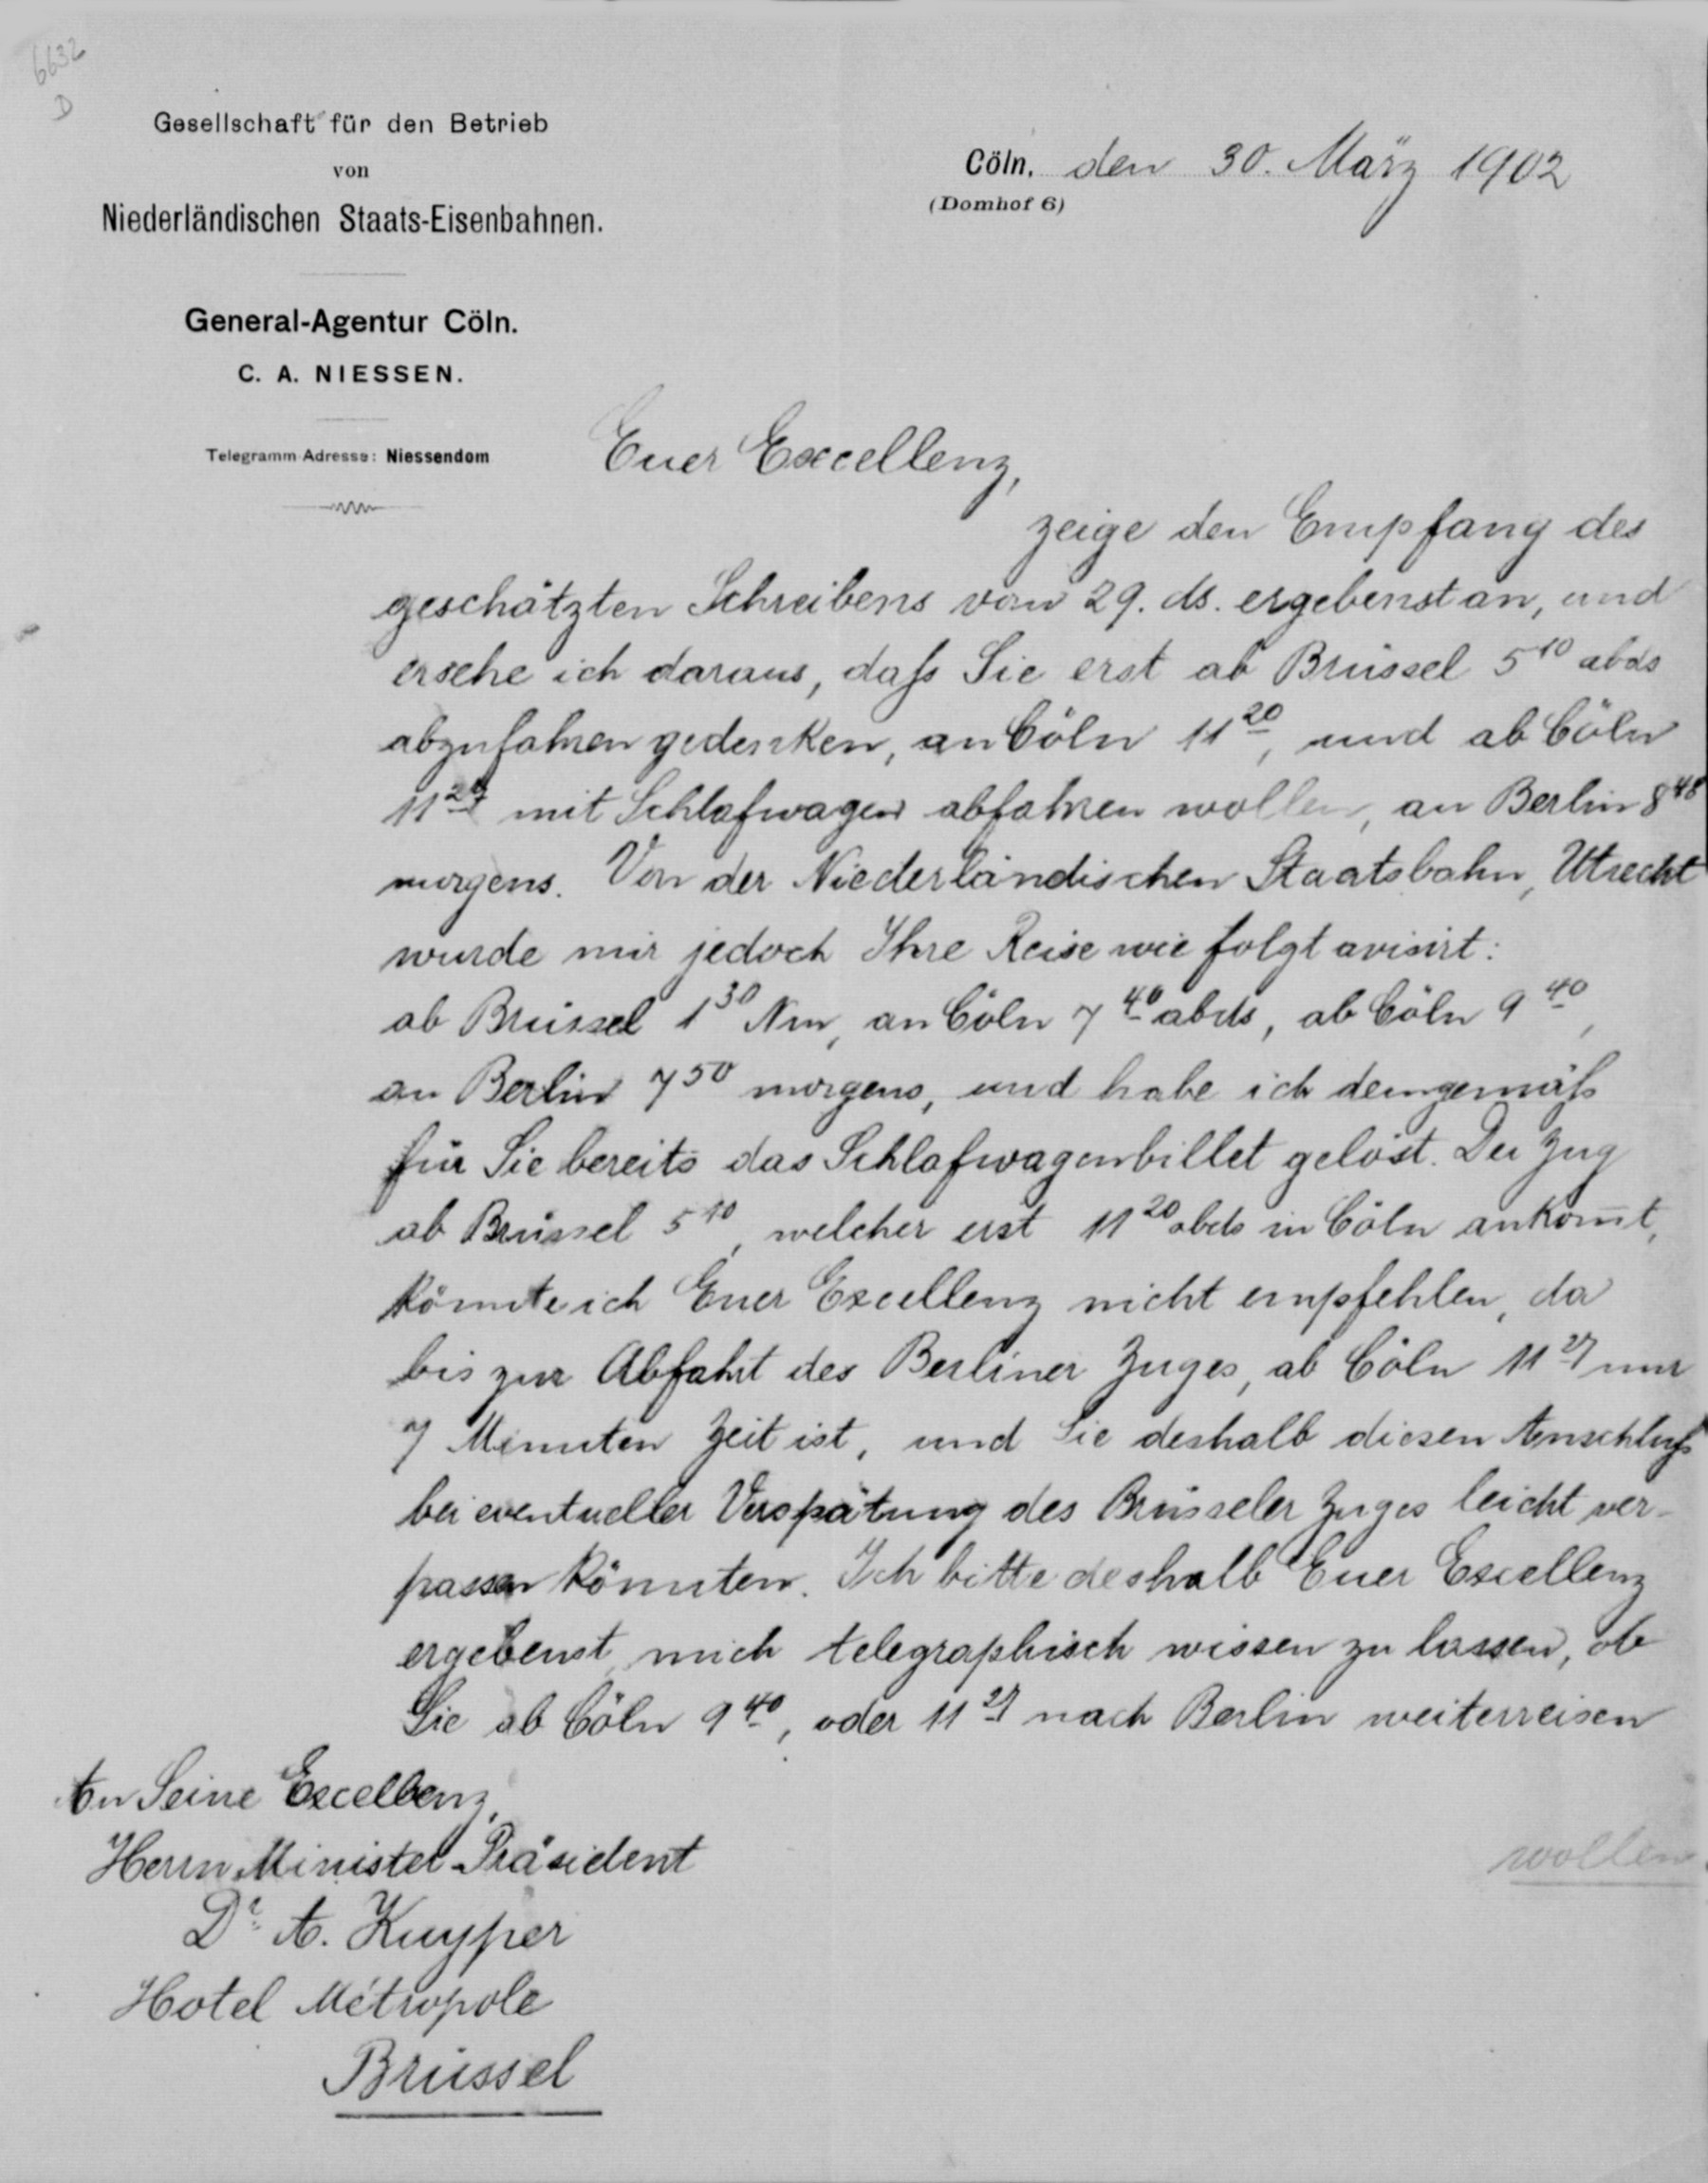 6632
D
Gesellschaft für den Betrieb
von
Niederländischen Staats-Eisenbahnen.
General-Agentur Cöln.
C. A. NIESSEN.
Telegramm-Adresse: Niessendom
Cöln, den 30. März 1902
(Domhof 6)
Euer Excellenz,
zeige den Empfang des
geschätzten Schreibens vom 29. ds. ergebenst an, und
ersehe ich daraus, daſs Sie erst ab Brüssel 5¹⁰ abds
abzufahren gedenken, an Cöln 11²⁰, und ab Cöln
11²⁷ mit Schlafwagen abfahren wollen, an Berlin 8⁴⁸
morgens. Von der Niederländischen Staatsbahn, Utrecht
wurde mir jedoch Ihre Reise wie folgt avisirt:
ab Brüssel 1³⁰ Nm, an Cöln 7⁴⁰ abds, ab Cöln 9⁴⁰,
an Berlin 7⁵⁰ morgens, und habe ich demgemäſs
für Sie bereits das Schlafwagenbillet gelöst. Der Zug
ab Brüssel 5¹⁰, welcher erst 11²⁰ abds in Cöln ankom̄t,
könnte ich Euer Excellenz nicht empfehlen, da
bis zur Abfahrt des Berliner Zuges, ab Cöln 11²⁷ nur
7 Minuten Zeit ist, und Sie deshalb diesen Anschluſs
bei eventueller Verspätung des Brüsseler Zuges leicht ver-
passen könnten. Ich bitte deshalb Euer Excellenz
ergebenst, mich telegraphisch wissen zu lassen, ob
Sie ab Cöln 9⁴⁰, oder 11²⁷ nach Berlin weiterreisen
wollen
An Seine Excellenz,
Herrn Minister-Präsident
Dr. A. Kuyper
Hotel Métropole
Brüssel